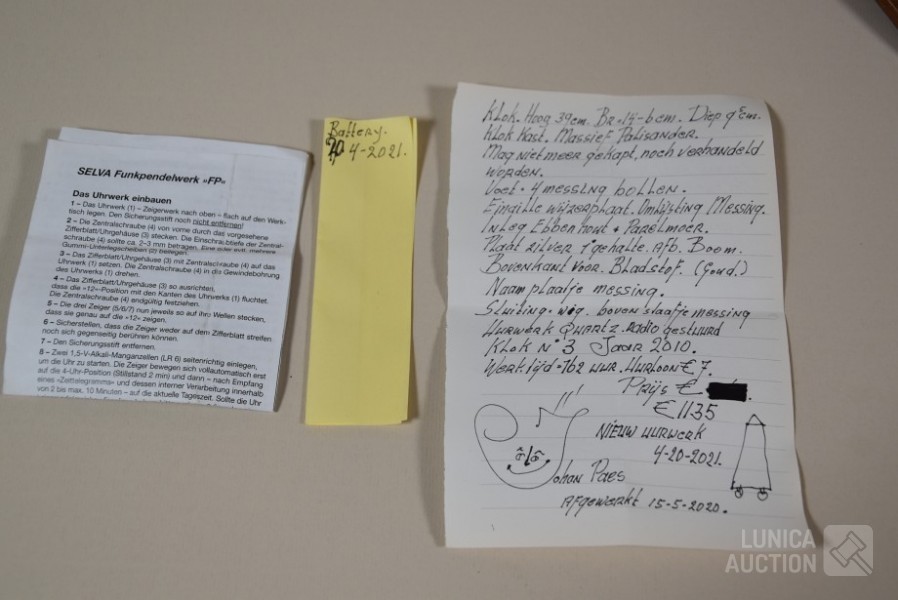 SELVA Funkpendelwerk »FP«
Das Uhrwerk einbauen
1 – Das Uhrwerk (1) – Zeigerwerk nach oben – flach auf den Werk-
tisch legen. Den Sicherungsstift noch nicht entfernen!
2 – Die Zentralschraube (4) von vorne durch das vorgesehene
Zifferblatt/Uhrgehäuse (3) stecken. Die Einschraubtiefe der Zentral-
schraube (4) sollte ca. 2–3 mm betragen. Eine oder evtl. mehrere
Gummi-Unterlegscheiben (2) beilegen.
3 – Das Zifferblatt/Uhrgehäuse (3) mit Zentralschraube (4) auf das
Uhrwerk (1) setzen. Die Zentralschraube (4) in die Gewindebohrung
des Uhrwerks (1) drehen.
4 – Das Zifferblatt/Uhrgehäuse (3) so ausrichten,
dass die »12«-Position mit den Kanten des Uhrwerks (1) fluchtet.
Die Zentralschraube (4) endgültig festziehen.
5 – Die drei Zeiger (5/6/7) nun jeweils so auf ihre Wellen stecken,
dass sie genau auf die »12« zeigen.
6 – Sicherstellen, dass die Zeiger weder auf dem Zifferblatt streifen
noch sich gegenseitig berühren können.
7 – Den Sicherungsstift entfernen.
8 – Zwei 1,5-V-Alkali-Manganzellen (LR 6) seitenrichtig einlegen,
um die Uhr zu starten. Die Zeiger bewegen sich vollautomatisch erst
auf die 4-Uhr-Position (Stillstand 2 min) und dann – nach Empfang
eines »Zeittelegramms« und dessen interner Verarbeitung innerhalb
von 2 bis max. 10 Minuten – auf die aktuelle Tageszeit. Sollte die Uhr
Battery.
20 4-2021.
Klok. Hoog 39cm. Br=15-6cm. Diep 9 cm.
Klok Kast. Massief Palisander.
Mag niet meer gekapt, noch verhandeld
worden.
Voet = 4 messing bollen.
wijzerplaat. Omlijsting Messing.
Inleg Ebbenhout + Parelmoer.
Plaat zilver 1e gehalte. Afb. Boom.
Bovenkant voor. Bladstof. (Goud.)
Naamplaatje messing.
Sluiting boven slaafje messing
Uurwerk Quartz. Radio gestuurd
Klok No 3 Jaar 2010.
Werktijd=162 uur. Uurloon €7.
Prijs €
€1135
NIEUW UURWERK
4-20-2021.
Johan Paes
Afgewerkt 15-5-2020.
LUNICA
AUCTION